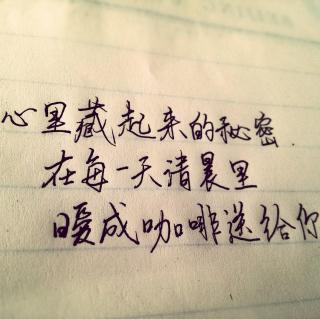 心里藏起来的秘密.
在每一天清晨里
暖成咖啡送给你